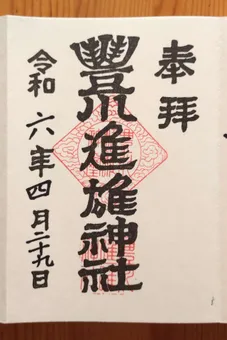 奉拝
豐川進雄神社
令和六年四月二十九日